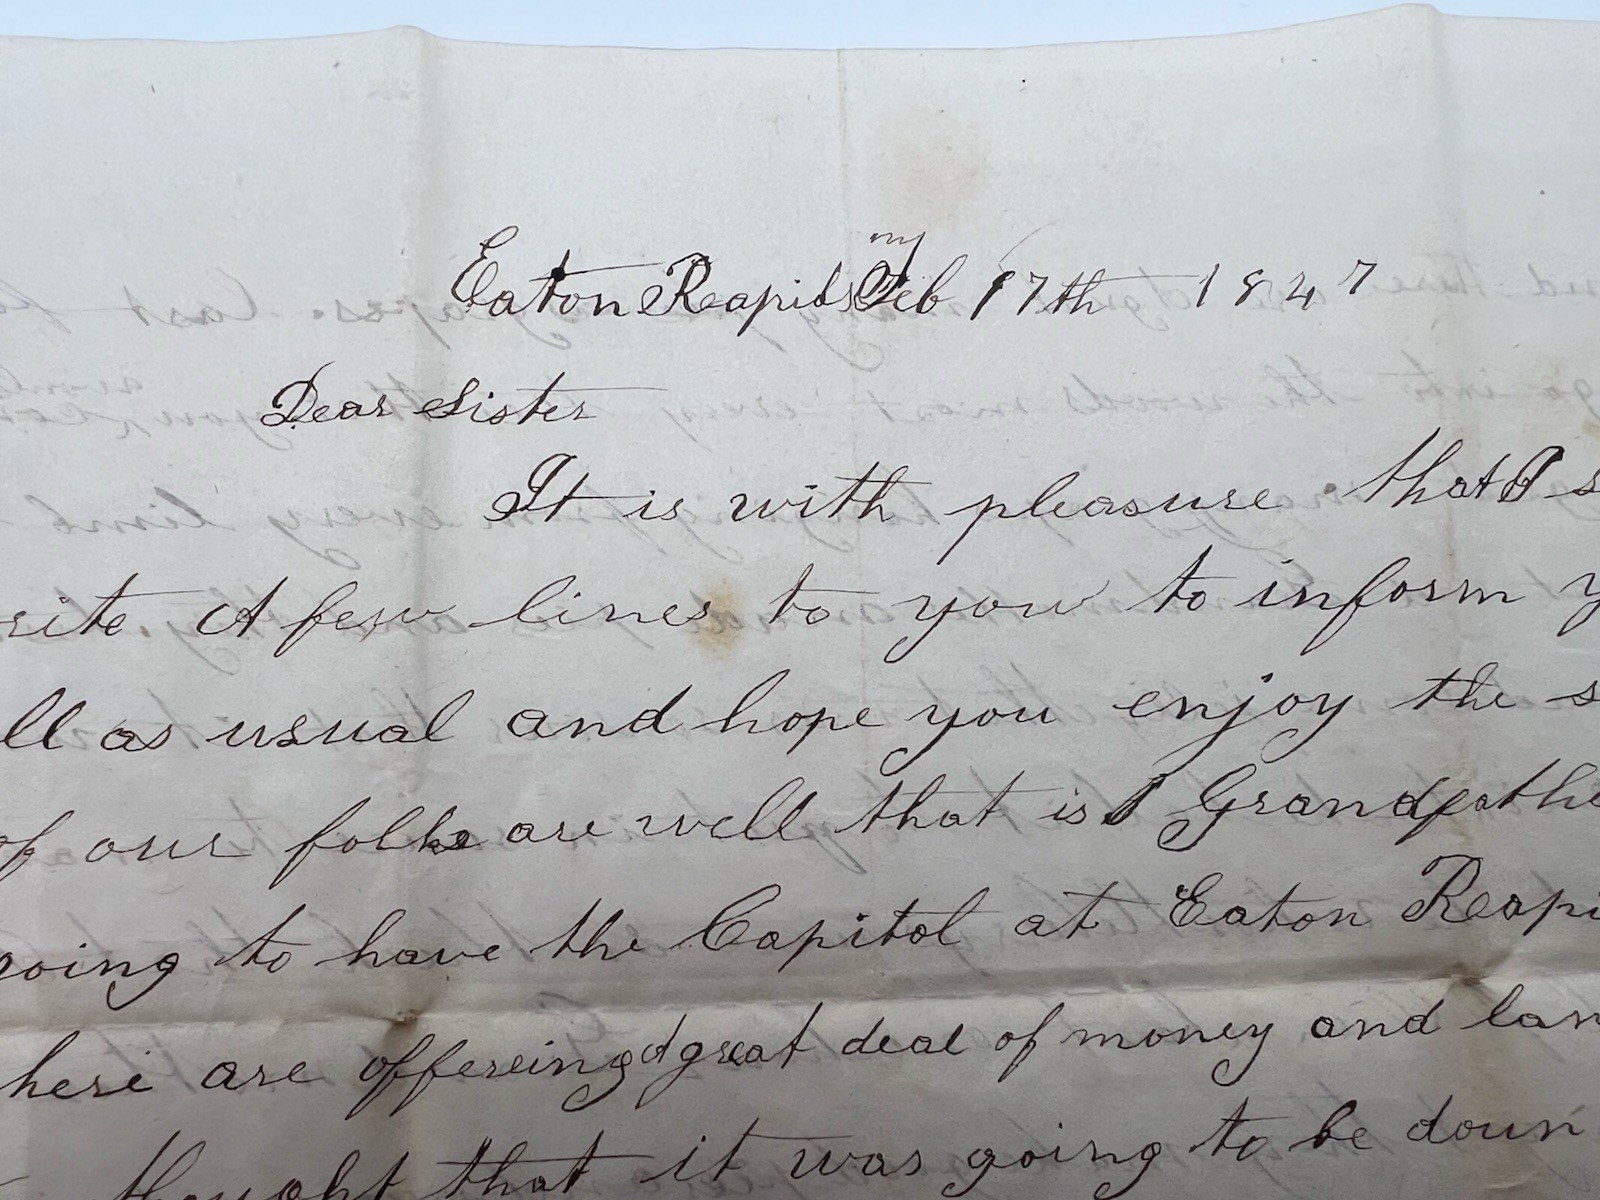 Eaton Reapids Feb 17th 1847
Dear Sister
It is with pleasure that I s
rite A few lines to you to inform y
ll as usual and hope you enjoy the s
of our folks are well that is I Grandfathe
going to have the Capitol at Eaton Reapi
here are offereing A great deal of money and lan
thought that it was going to be doun